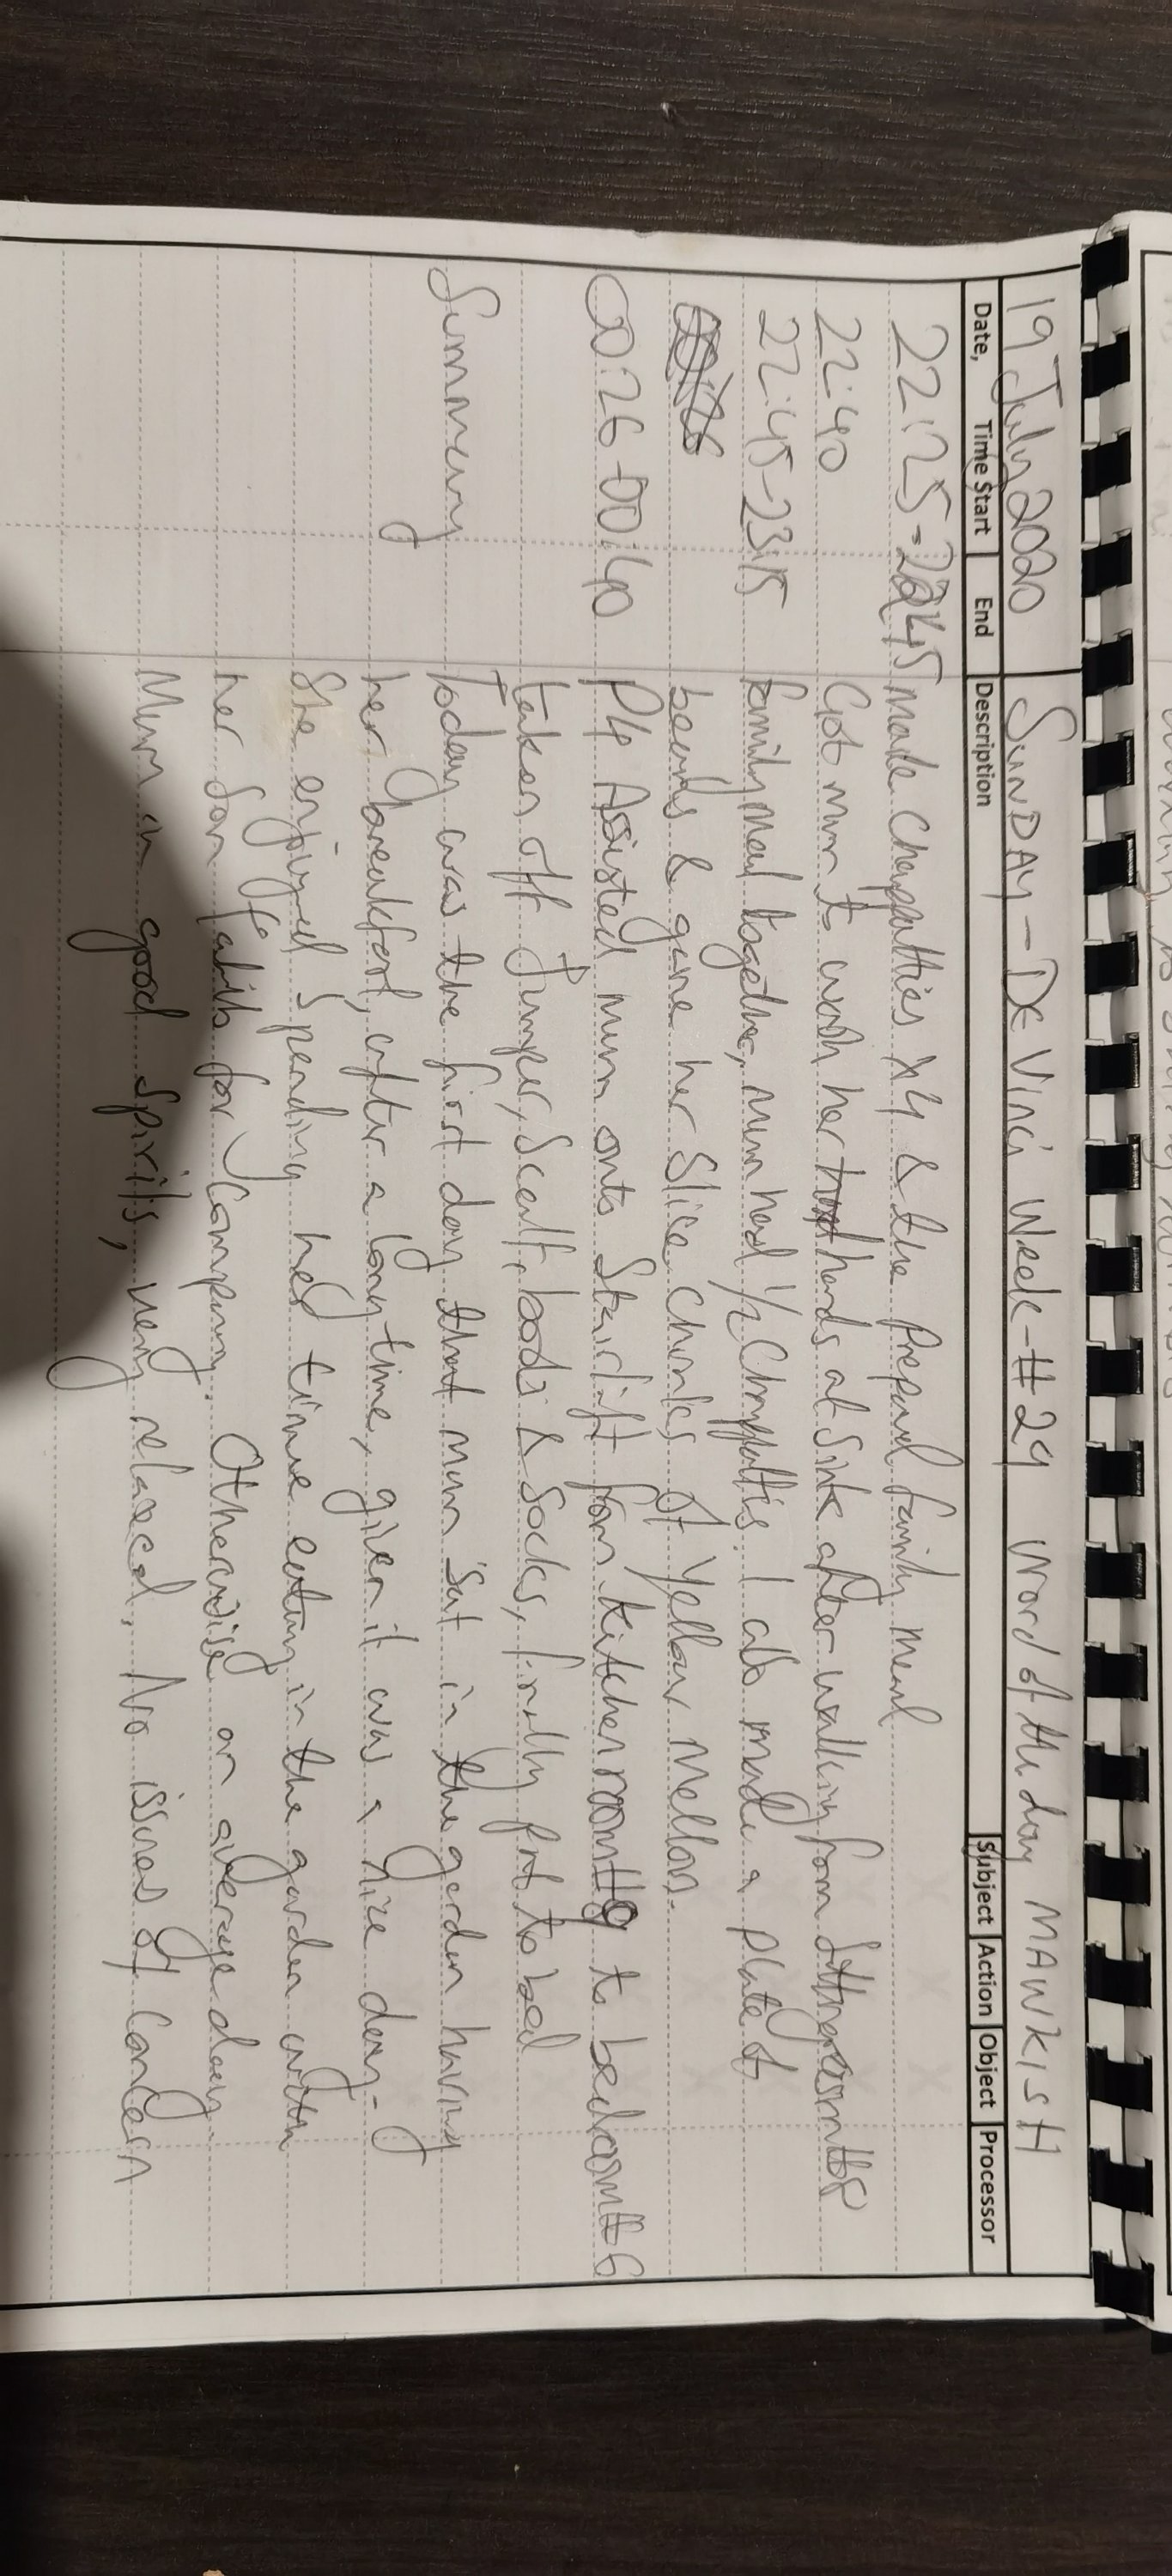 19 July 2020 SUNDAY - DE Vinci Week - #29 word of the day MAWKISH
Date, Time Start End Description Subject Action Object Processor
22:25 - 2245 Made Chappatties x4 & the Prepared family meal
22:40 Got mum to wash her hands at Sink after walking from Sittingroom#8
22:45 - 23:15 family meal together, mum had 1/2 Chappatties. I also made a plate of
beards & gave her Slice Chunks of Yellow Mellon.
00:26 - 00:40 P4 Assisted mum onto Stairlift from Kitchen room#9 to bedroom#6
takes off Jumper, Scalf, bods & Socks, finally put to bed
Summary Today was the first day that mum sat in the garden having
her breakfast, after a long time, given it was a nice day -
She enjoyed Spending hed time eating in the garden with
her Son for Company. Otherwise an average day.
Mum in good spirits, very relaxed, No issues of Concern